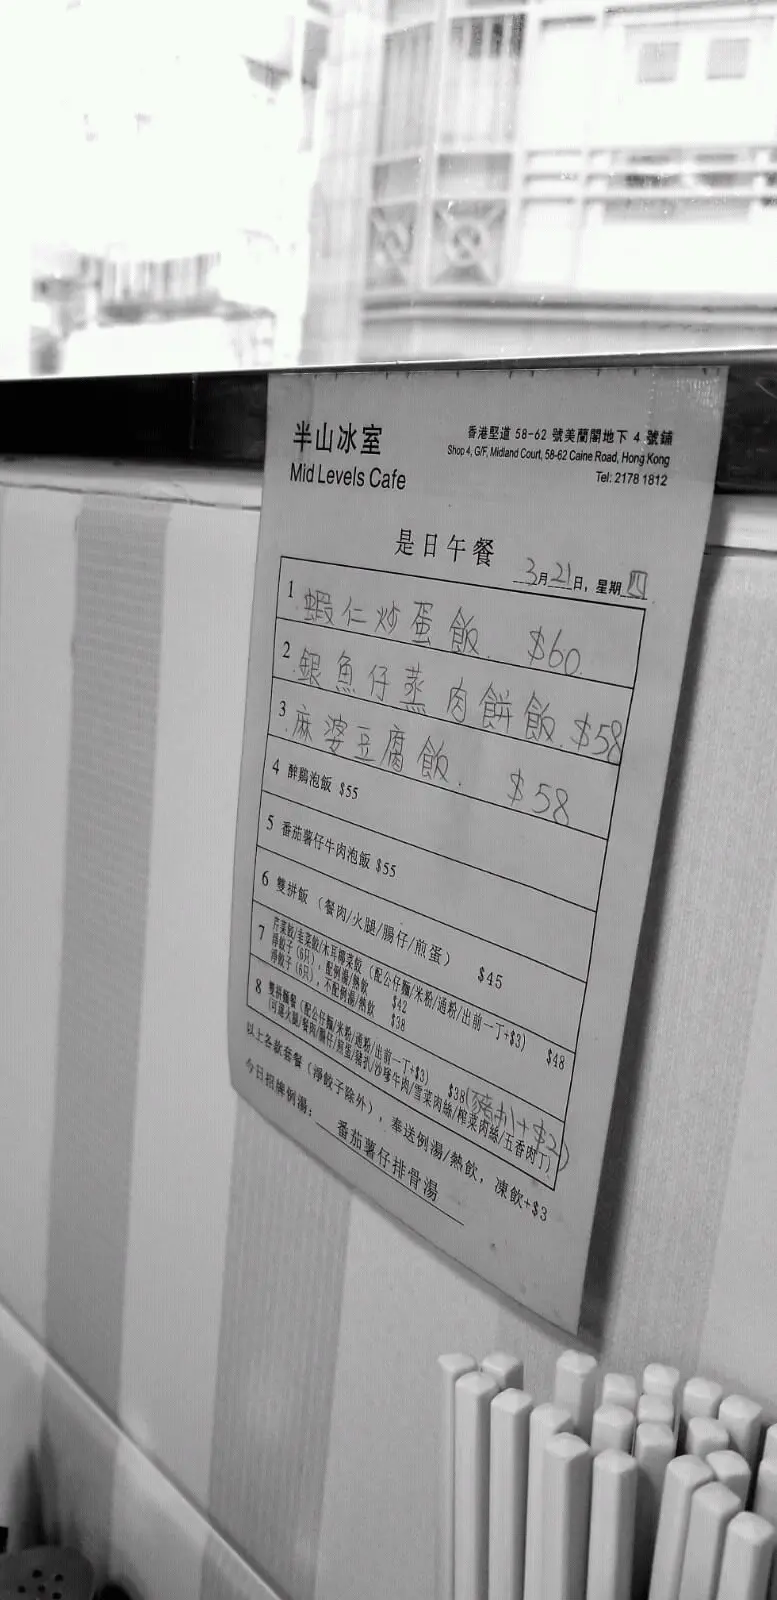 半山冰室
Mid Levels Cafe
香港堅道 58-62 號美蘭閣地下 4 號鋪
Shop 4, G/F, Midland Court, 58-62 Caine Road, Hong Kong
Tel: 2178 1812
是日午餐
3月21日，星期四
1 蝦仁炒蛋飯. $60
2 銀魚仔蒸肉餅飯. $58
3 麻婆豆腐飯. $58
4 醉鷄泡飯 $55
5 番茄薯仔牛肉泡飯 $55
6 雙拼飯 （餐肉/火腿/腸仔/煎蛋） $45
7 芹菜餃/韭菜餃/木耳椰菜餃（配公仔麵/米粉/通粉/出前一丁+$3） $48
淨餃子（6只），配例湯/熱飲 $42
淨餃子（6只），不配例湯/熱飲 $38
8 雙拼麵餐（配公仔麵/米粉/通粉/出前一丁+$3） $38(豬扒+$2)
(可選火腿/餐肉/腸仔/煎蛋/豬扒/沙嗲牛肉/雪菜肉絲/榨菜肉絲/五香肉丁)
以上各款套餐（淨餃子除外），奉送例湯/熱飲，凍飲+$3
今日招牌例湯： 番茄薯仔排骨湯